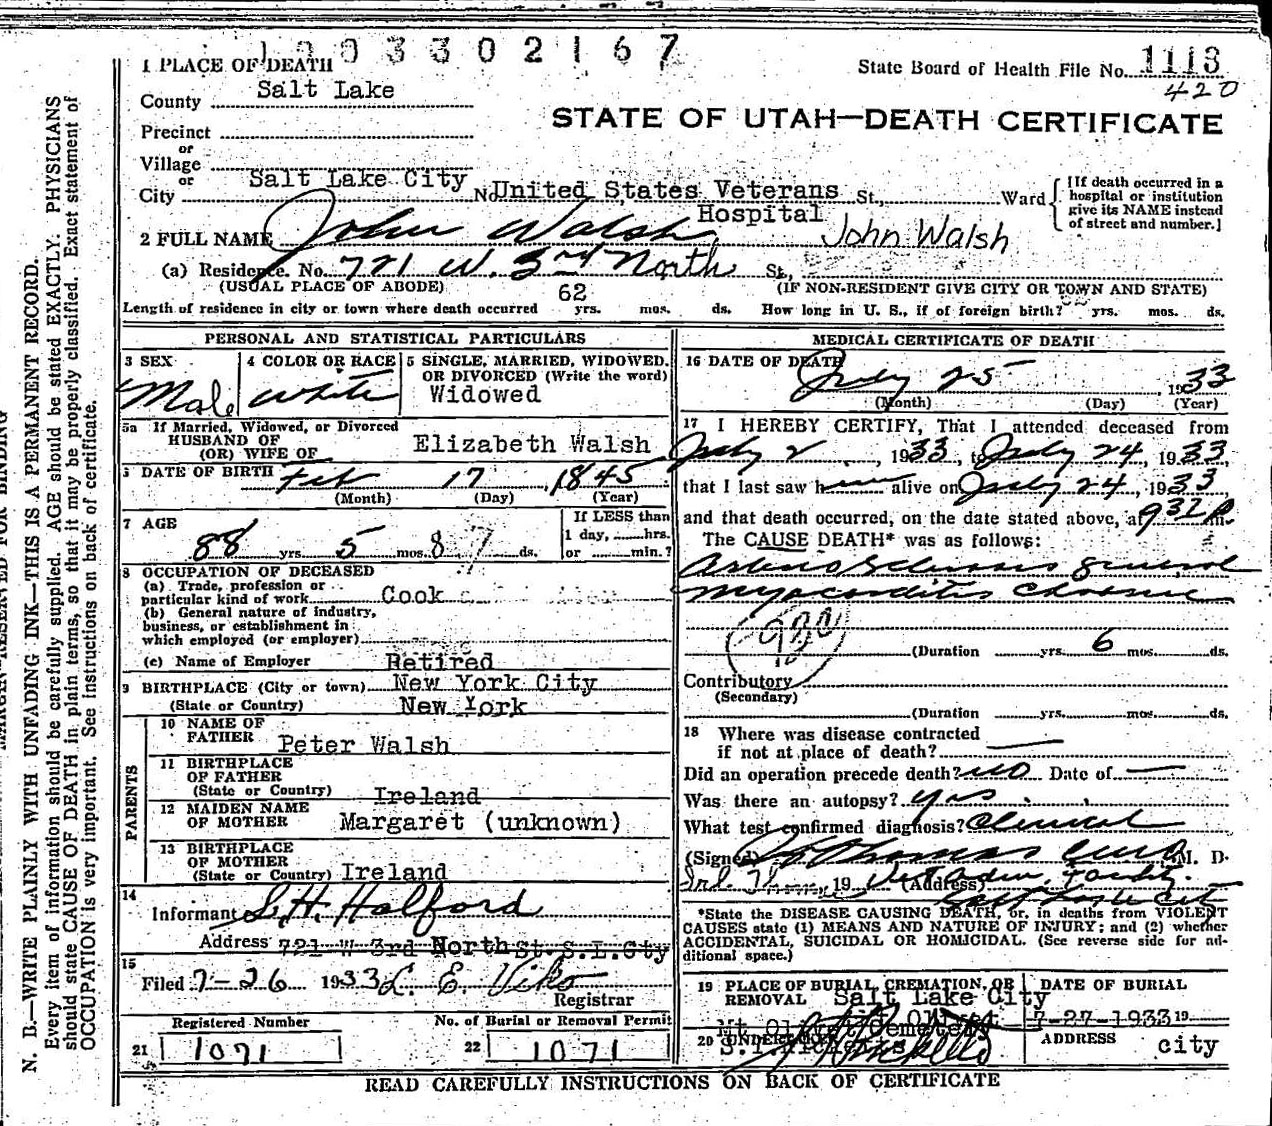 1003302167
1 PLACE OF DEATH
State Board of Health File No. 1113
420
County Salt Lake
STATE OF UTAH—DEATH CERTIFICATE
Precinct
or
Village
or
City Salt Lake City No. United States Veterans Hospital St., Ward
[If death occurred in a
hospital or institution
give its NAME instead
of street and number.]
2 FULL NAME John Walsh John Walsh
(a) Residence. No. 721 W. 3rd North St.,
(USUAL PLACE OF ABODE) (IF NON-RESIDENT GIVE CITY OR TOWN AND STATE)
Length of residence in city or town where death occurred 62 yrs. mos. ds. How long in U. S., if of foreign birth? yrs. mos. ds.
PERSONAL AND STATISTICAL PARTICULARS
3 SEX
Male
4 COLOR OR RACE
White
5 SINGLE, MARRIED, WIDOWED,
OR DIVORCED (Write the word)
Widowed
5a If Married, Widowed, or Divorced
HUSBAND OF
(OR) WIFE OF Elizabeth Walsh
6 DATE OF BIRTH Feb 17 1845
(Month) (Day) (Year)
7 AGE
88 yrs. 5 mos. 8 7 ds.
If LESS than
1 day, hrs.
or min.?
8 OCCUPATION OF DECEASED
(a) Trade, profession or
particular kind of work Cook
(b) General nature of industry,
business, or establishment in
which employed (or employer)
(c) Name of Employer Retired
9 BIRTHPLACE (City or town) New York City
(State or Country) New York
PARENTS
10 NAME OF
FATHER Peter Walsh
11 BIRTHPLACE
OF FATHER
(State or Country) Ireland
12 MAIDEN NAME
OF MOTHER Margaret (unknown)
13 BIRTHPLACE
OF MOTHER
(State or Country) Ireland
14
Informant S. H. Halford
Address 721 W 3rd North St. S.L.Cty
15
Filed 7-26 1933 L. E. Viko
Registrar
Registered Number
21 1071
No. of Burial or Removal Permit
22 1071
MEDICAL CERTIFICATE OF DEATH
16 DATE OF DEATH
July 25 1933
(Month) (Day) (Year)
17 I HEREBY CERTIFY, That I attended deceased from
July 2, 1933, to July 24, 1933
that I last saw him alive on July 24, 1933
and that death occurred, on the date stated above, at 932 P. m.
The CAUSE DEATH* was as follows:
Arterio Sclerosis general
Myocarditis Chronic
93c
(Duration yrs. 6 mos. ds.
Contributory
(Secondary)
(Duration yrs. mos. ds.
18 Where was disease contracted
if not at place of death? —
Did an operation precede death? no Date of —
Was there an autopsy? yes
What test confirmed diagnosis? Clinical
(Signed) Thomas M. D.
19 (Address)
Salt Lake City
*State the DISEASE CAUSING DEATH, or, in deaths from VIOLENT
CAUSES state (1) MEANS AND NATURE OF INJURY; and (2) whether
ACCIDENTAL, SUICIDAL OR HOMICIDAL. (See reverse side for ad-
ditional space.)
19 PLACE OF BURIAL, CREMATION, OR
REMOVAL Salt Lake City
Mt Olivet Cemetery
DATE OF BURIAL
7-27-1933 19
20 UNDERTAKER
ADDRESS
city
READ CAREFULLY INSTRUCTIONS ON BACK OF CERTIFICATE
MARGIN RESERVED FOR BINDING
N. B.—WRITE PLAINLY WITH UNFADING INK—THIS IS A PERMANENT RECORD.
Every item of information should be carefully supplied. AGE should be stated EXACTLY. PHYSICIANS
should state CAUSE OF DEATH in plain terms, so that it may be properly classified. Exact statement of
OCCUPATION is very important. See instructions on back of certificate.